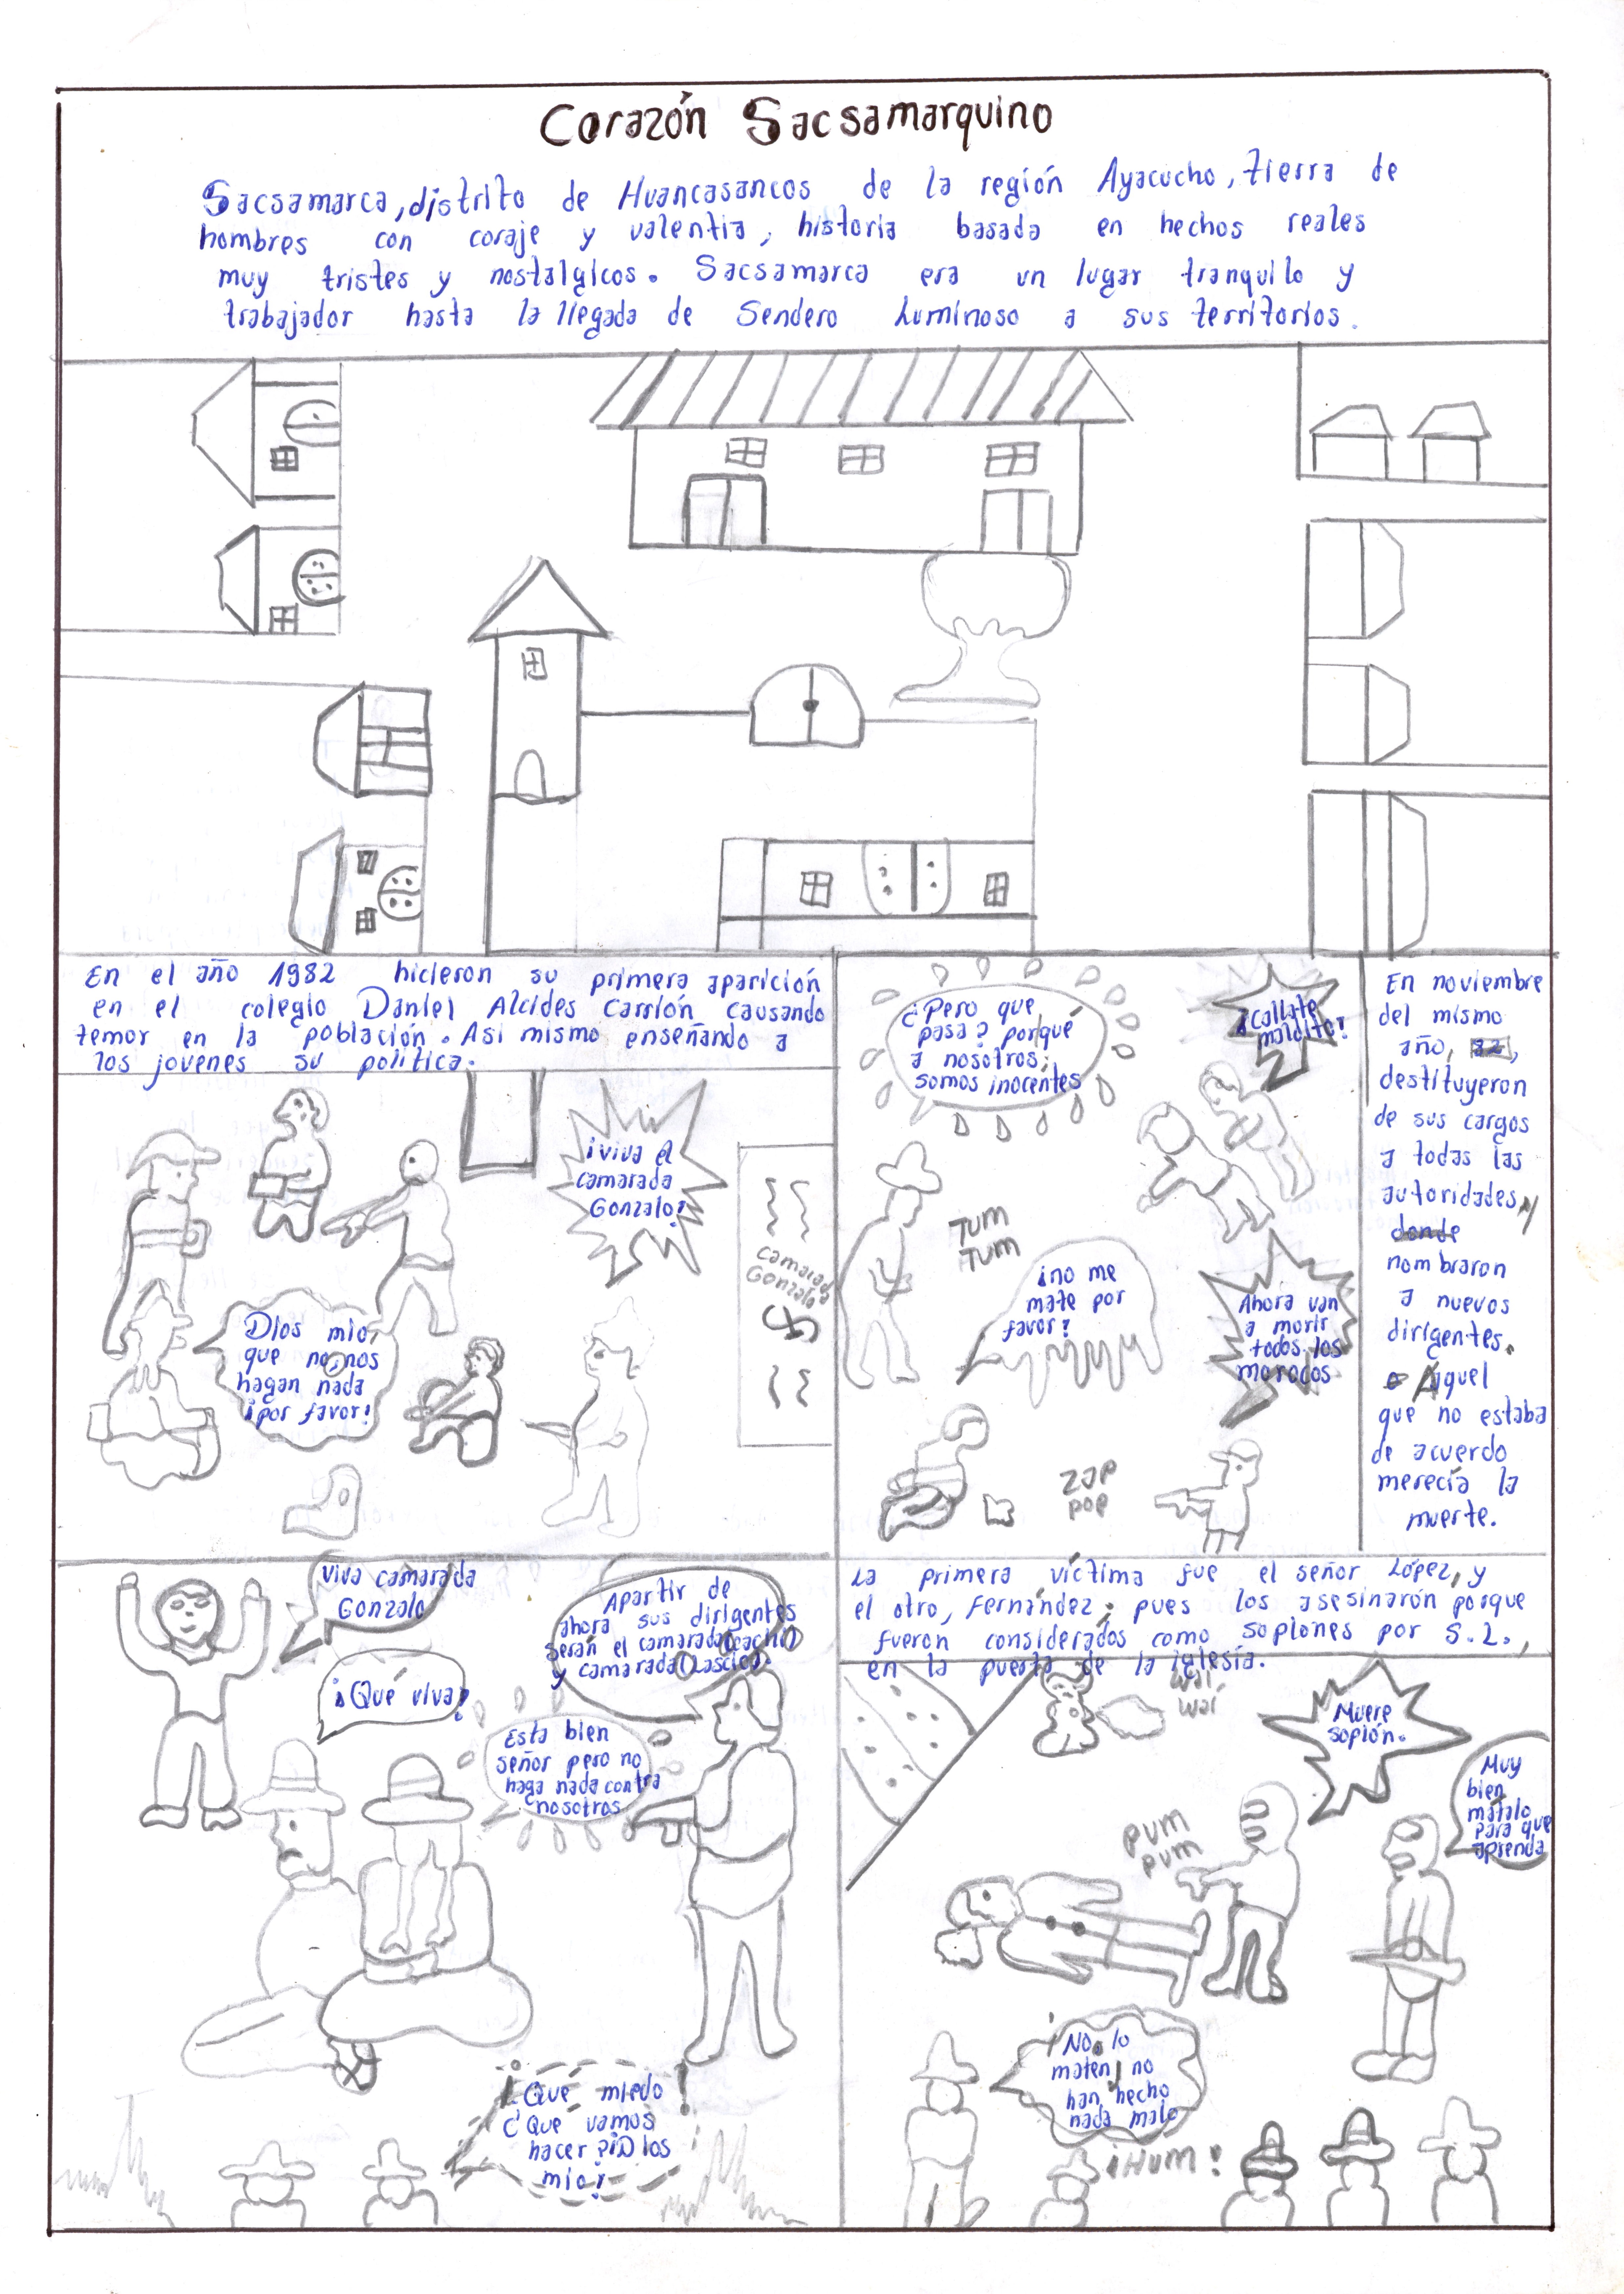 Corazón Sacsamarquino
Sacsamarca, distrito de Huancasancos de la región Ayacucho, tierra de
hombres con coraje y valentia, historia basada en hechos reales
muy tristes y nostalgicos. Sacsamarca era un lugar tranquilo y
trabajador hasta la llegada de Sendero Luminoso a sus territorios.
En el año 1982 hicieron su primera aparición
en el colegio Daniel Alcides Carrión causando
temor en la población. Asi mismo enseñando a
los jovenes su política.
¡viva el
camarada
Gonzalo!
camarada
Gonzalo
Dios mio,
que no, nos
hagan nada
¡por favor!
¿Pero que
pasa? porqué
a nosotros;
somos inocentes
¡callate
maldito!
TUM
TUM
¡no me
mate por
favor?
Ahora van
a morir
todos. los
morocos.
ZAP
POP
En noviembre
del mismo
año, 82,
destituyeron
de sus cargos
a todas las
autoridades, y
donde
nombraron
a nuevos
dirigentes.
o Aquel
que no estaba
de acuerdo
merecía la
muerte.
Viva camarada
Gonzalo
¡Qué viva!
Apartir de
ahora sus dirigentes
serán el camarada
y camarada
Esta bien
señor pero no
haga nada contra
nosotros
¡Qué miedo!
¿Que vamos
hacer?¡Dios
mio!
La primera víctima fue el señor López, y
el otro, Fernández; pues los asesinarón porque
fueron considerados como soplones por S.L.,
en la puerta de la iglesía.
waí
waí
Muere
soplón.
Muy
bien
mátalo
para que
aprenda
PUM
PUM
¡No, lo
maten, no
han hecho
nada malo
¡HUM!